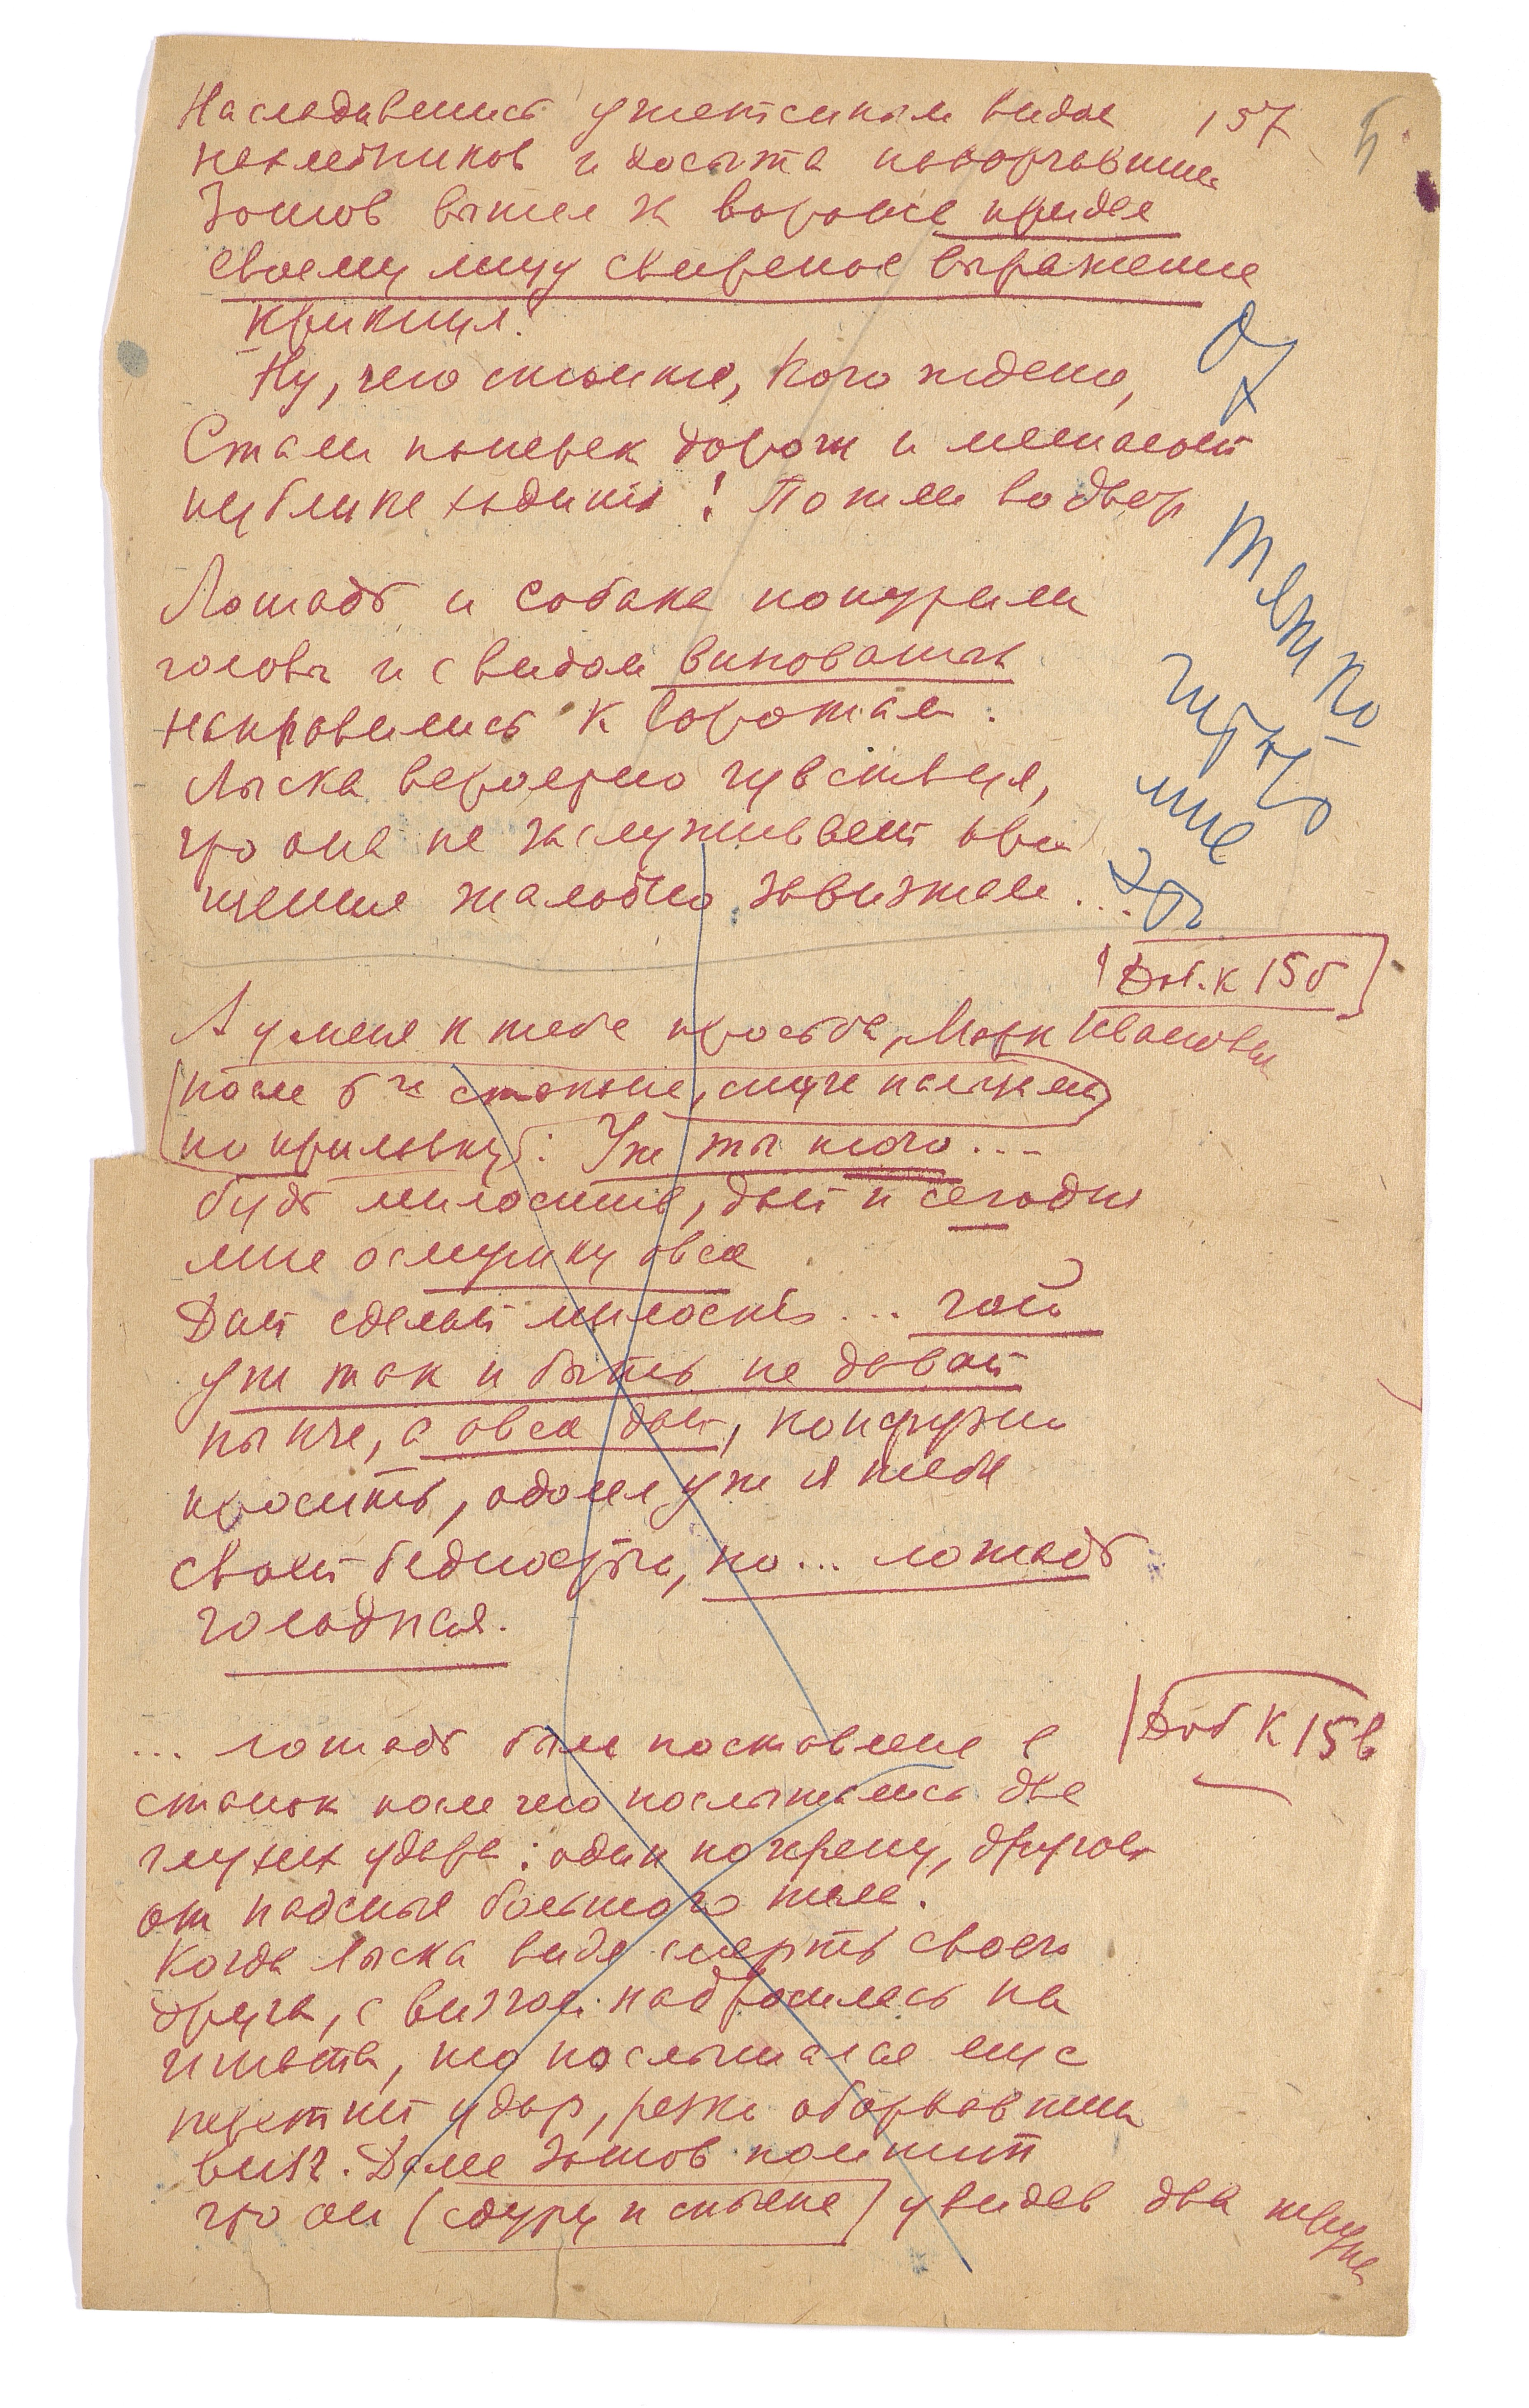 Насладившись ужасным видом 157 5
нахлебников и досыта наворчавшись
Зотов вышел за ворота придав
своему лицу свирепое выражение
крикнул:
Ну, чего стоите, кого ждете,
Стали поперек дороги и мешают
публике ходить! Пошли во двор
Ох
тяжко
читать
мне
это
Лошадь и собака понурили
головы и с видом виноватых
направились к воротам.
Лыска вероятно чувствуя,
что она не заслуживает про
щения жалобно завизжала...
Доб. к 15б
А у меня к тебе просьба, Марк Иваныч
после 6го стакана, стуча пальцем
по прилавку: Уж ты того...
будь милостив, дай и сегодня
мне осмушку овса
Дай сделай милость... чай
уж так и быть не давай
нынче, а овса дай, конфузно
просить, одолел уж я тебя
своей бедностью, но... лошадь
голодная.
Доб к 15в
... лошадь была поставлена в
станок после чего послышались два
глухих удара: один по черепу, другой
от падения большого тела.
Когда Лыска видя смерть своего
друга, с визгом набросилась на
Игната, то послышался еще
третий удар, резко оборвавший
визг. Далее Зотов помнит
что он (сдуру и спьяна) увидев два трупа